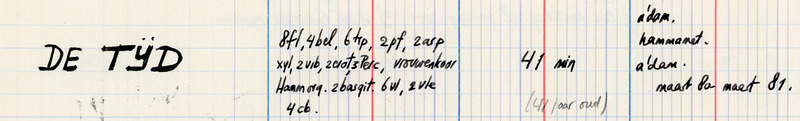 DE TIJD
8fl, 4bel, 6trp, 2pf, 2arp
xyl, 2vib, 2crotsPerc, vrouwenkoor
Hammorg. 2basgit. 6vl, 2vle
4cb.
41 min
(41 jaar oud)
a'dam.
hammamet.
a'dam.
maart 80 maart 81.